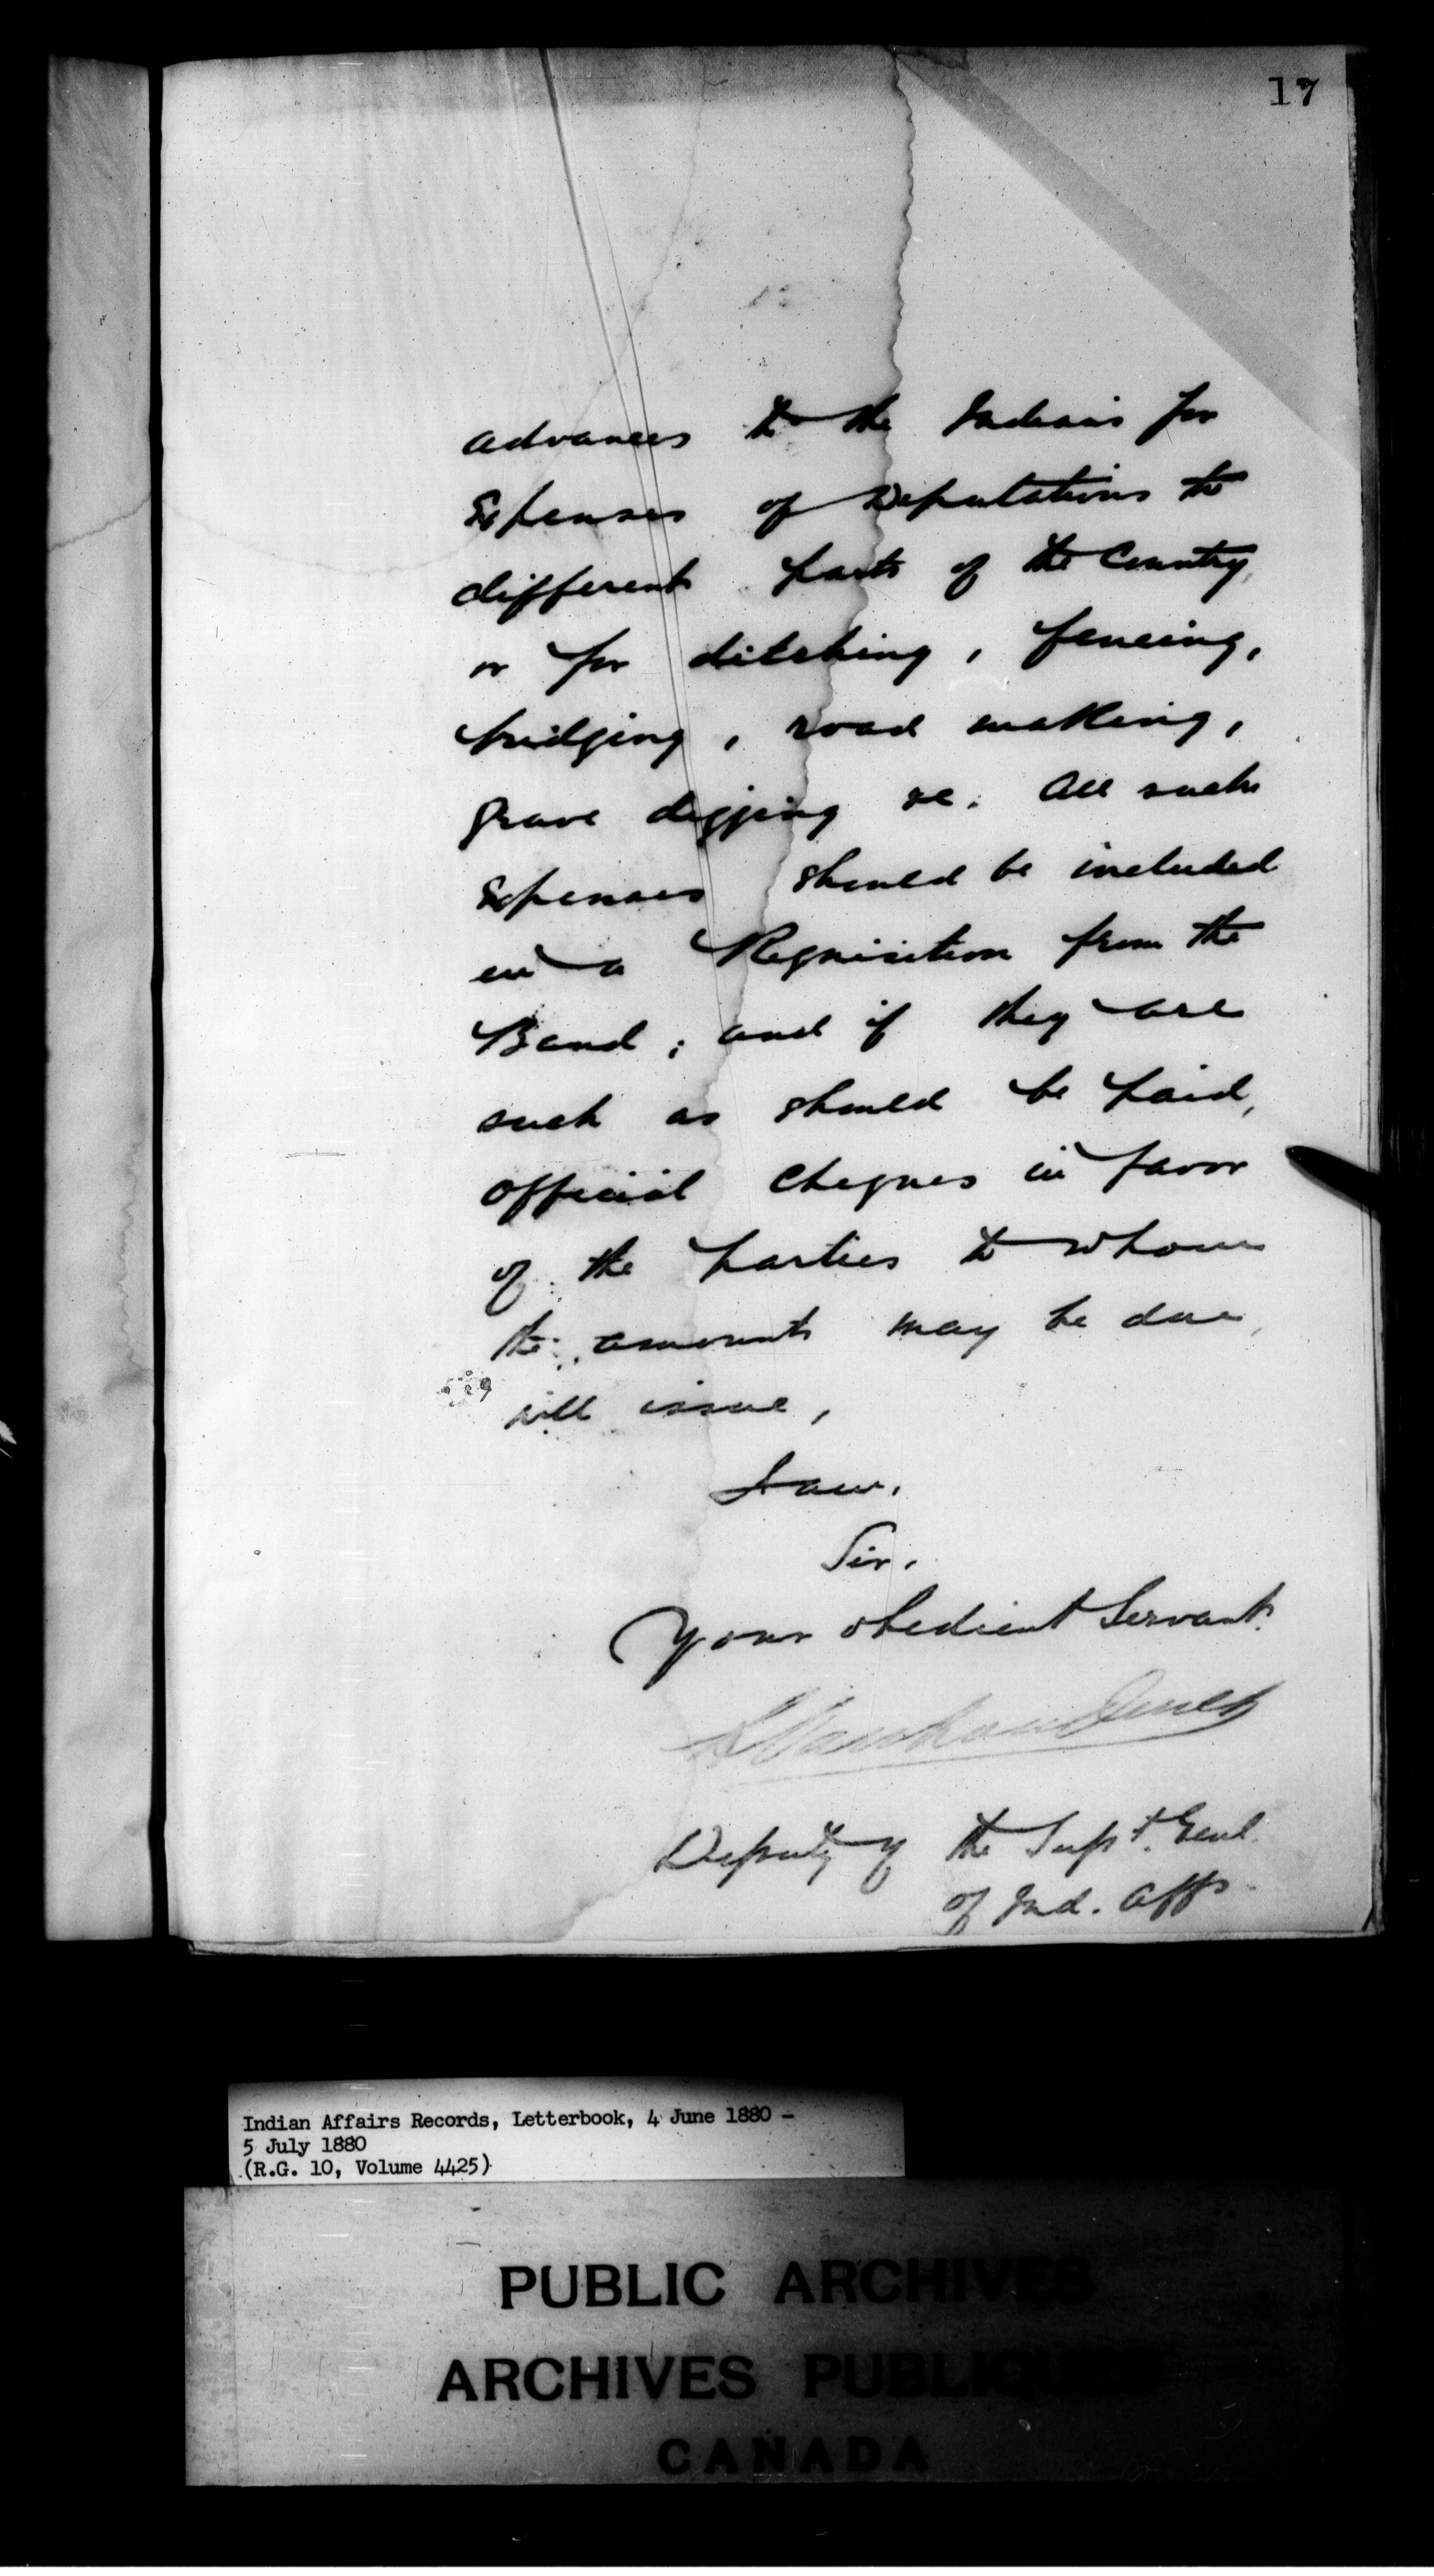 17
advances to the Indians for
Expenses of Deputations to
different parts of the Country,
or for ditching, fencing,
bridging, road making,
grave digging &c. All such
Expenses should be included
in a Requisition from the
Band; and if they are
such as should be paid,
official cheques in favor
of the parties to whom
the amounts may be due,
will issue,
I am.
Sir.
Your obedient Servant.
L Vankoughnet
Deputy of the Supt. Genl.
of Ind. Affs.
Indian Affairs Records, Letterbook, 4 June 1880 -
5 July 1880
(R.G. 10, Volume 4425)
PUBLIC ARCHIVES
ARCHIVES PUBLIQUES
CANADA